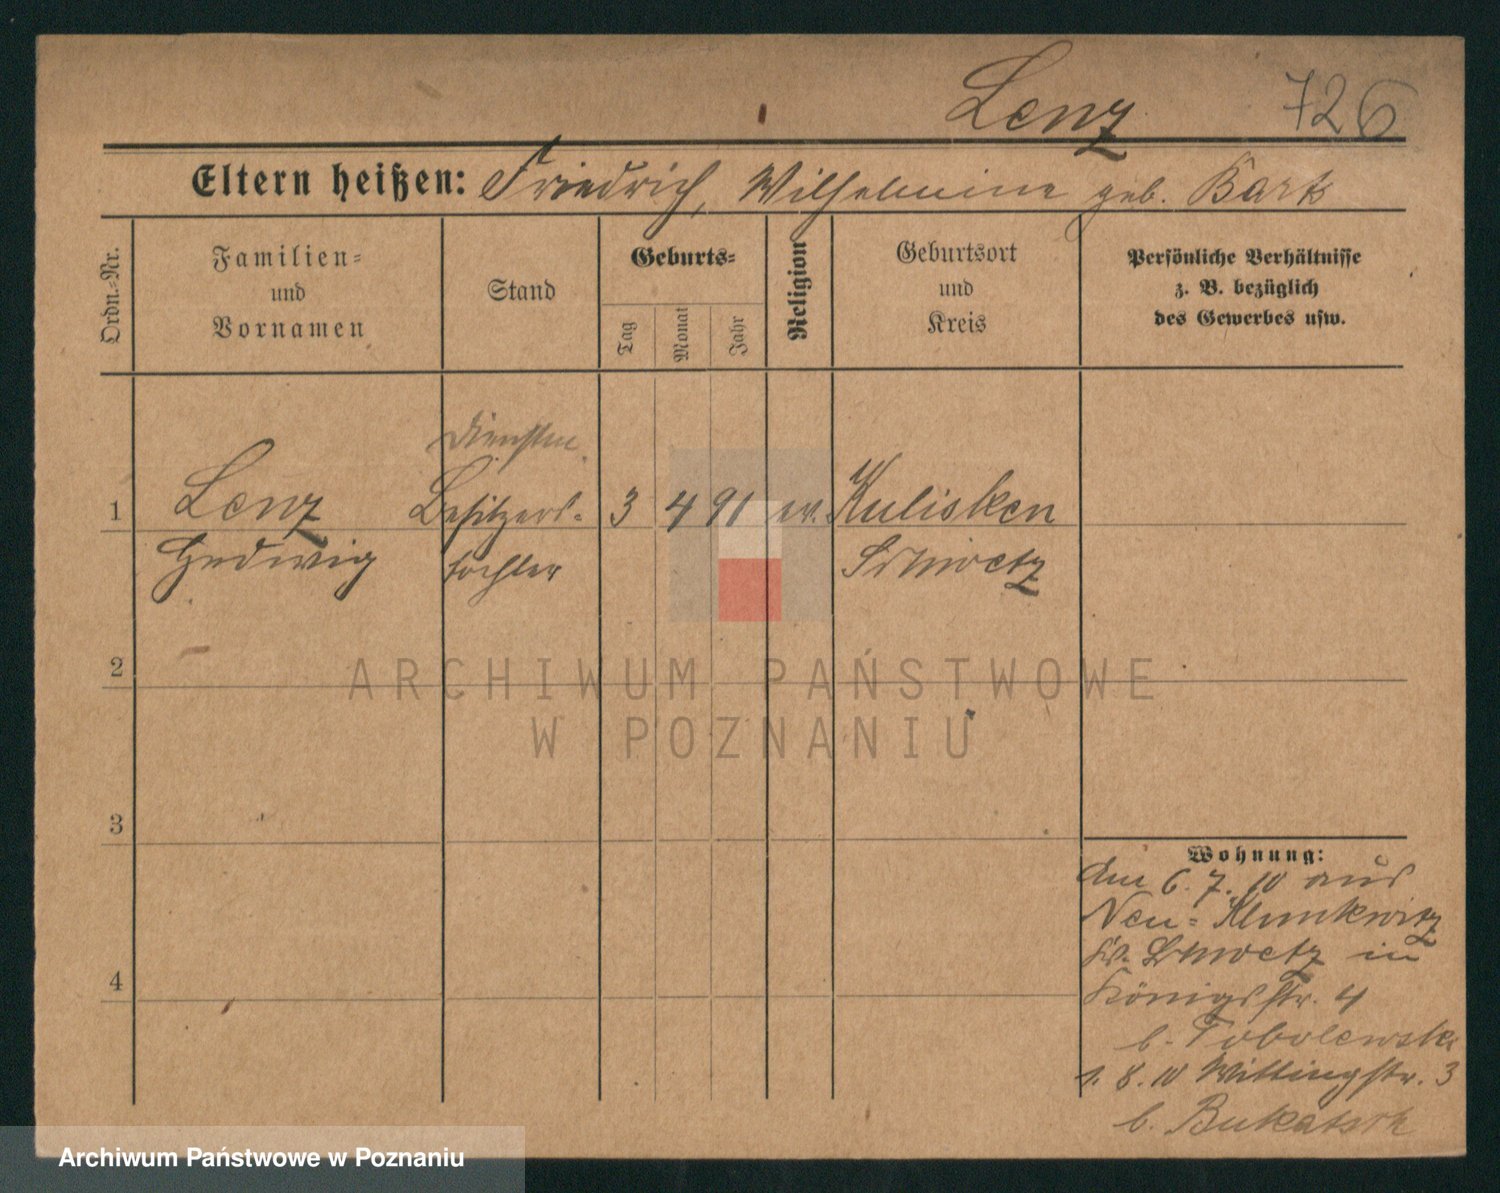 Lenz 726
Eltern heißen: Friedrich, Wilhelmine geb. Bark
Ordn.-Nr.
Familien-
und
Vornamen
Stand
Geburts-
Tag
Monat
Jahr
Religion
Geburtsort
und
Kreis
Persönliche Verhältnisse
z. B. bezüglich
des Gewerbes usw.
1 Lenz Besitzers- 3 4 91 ev. Kulisken
Hedwig tochter Schwetz
2
3
4
Wohnung:
Am 6.7.10 aus
Neu-
Kr. Schwetz in
Königsstr. 4
b. Tobolewski
1.8.10 Wittingstr. 3
b. Bukatsch
ARCHIWUM PAŃSTWOWE
W POZNANIU
Archiwum Państwowe w Poznaniu